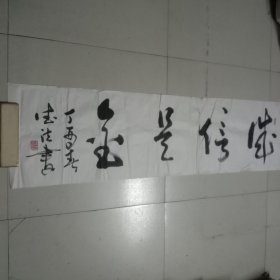 诚信是金
丁酉春
德法书